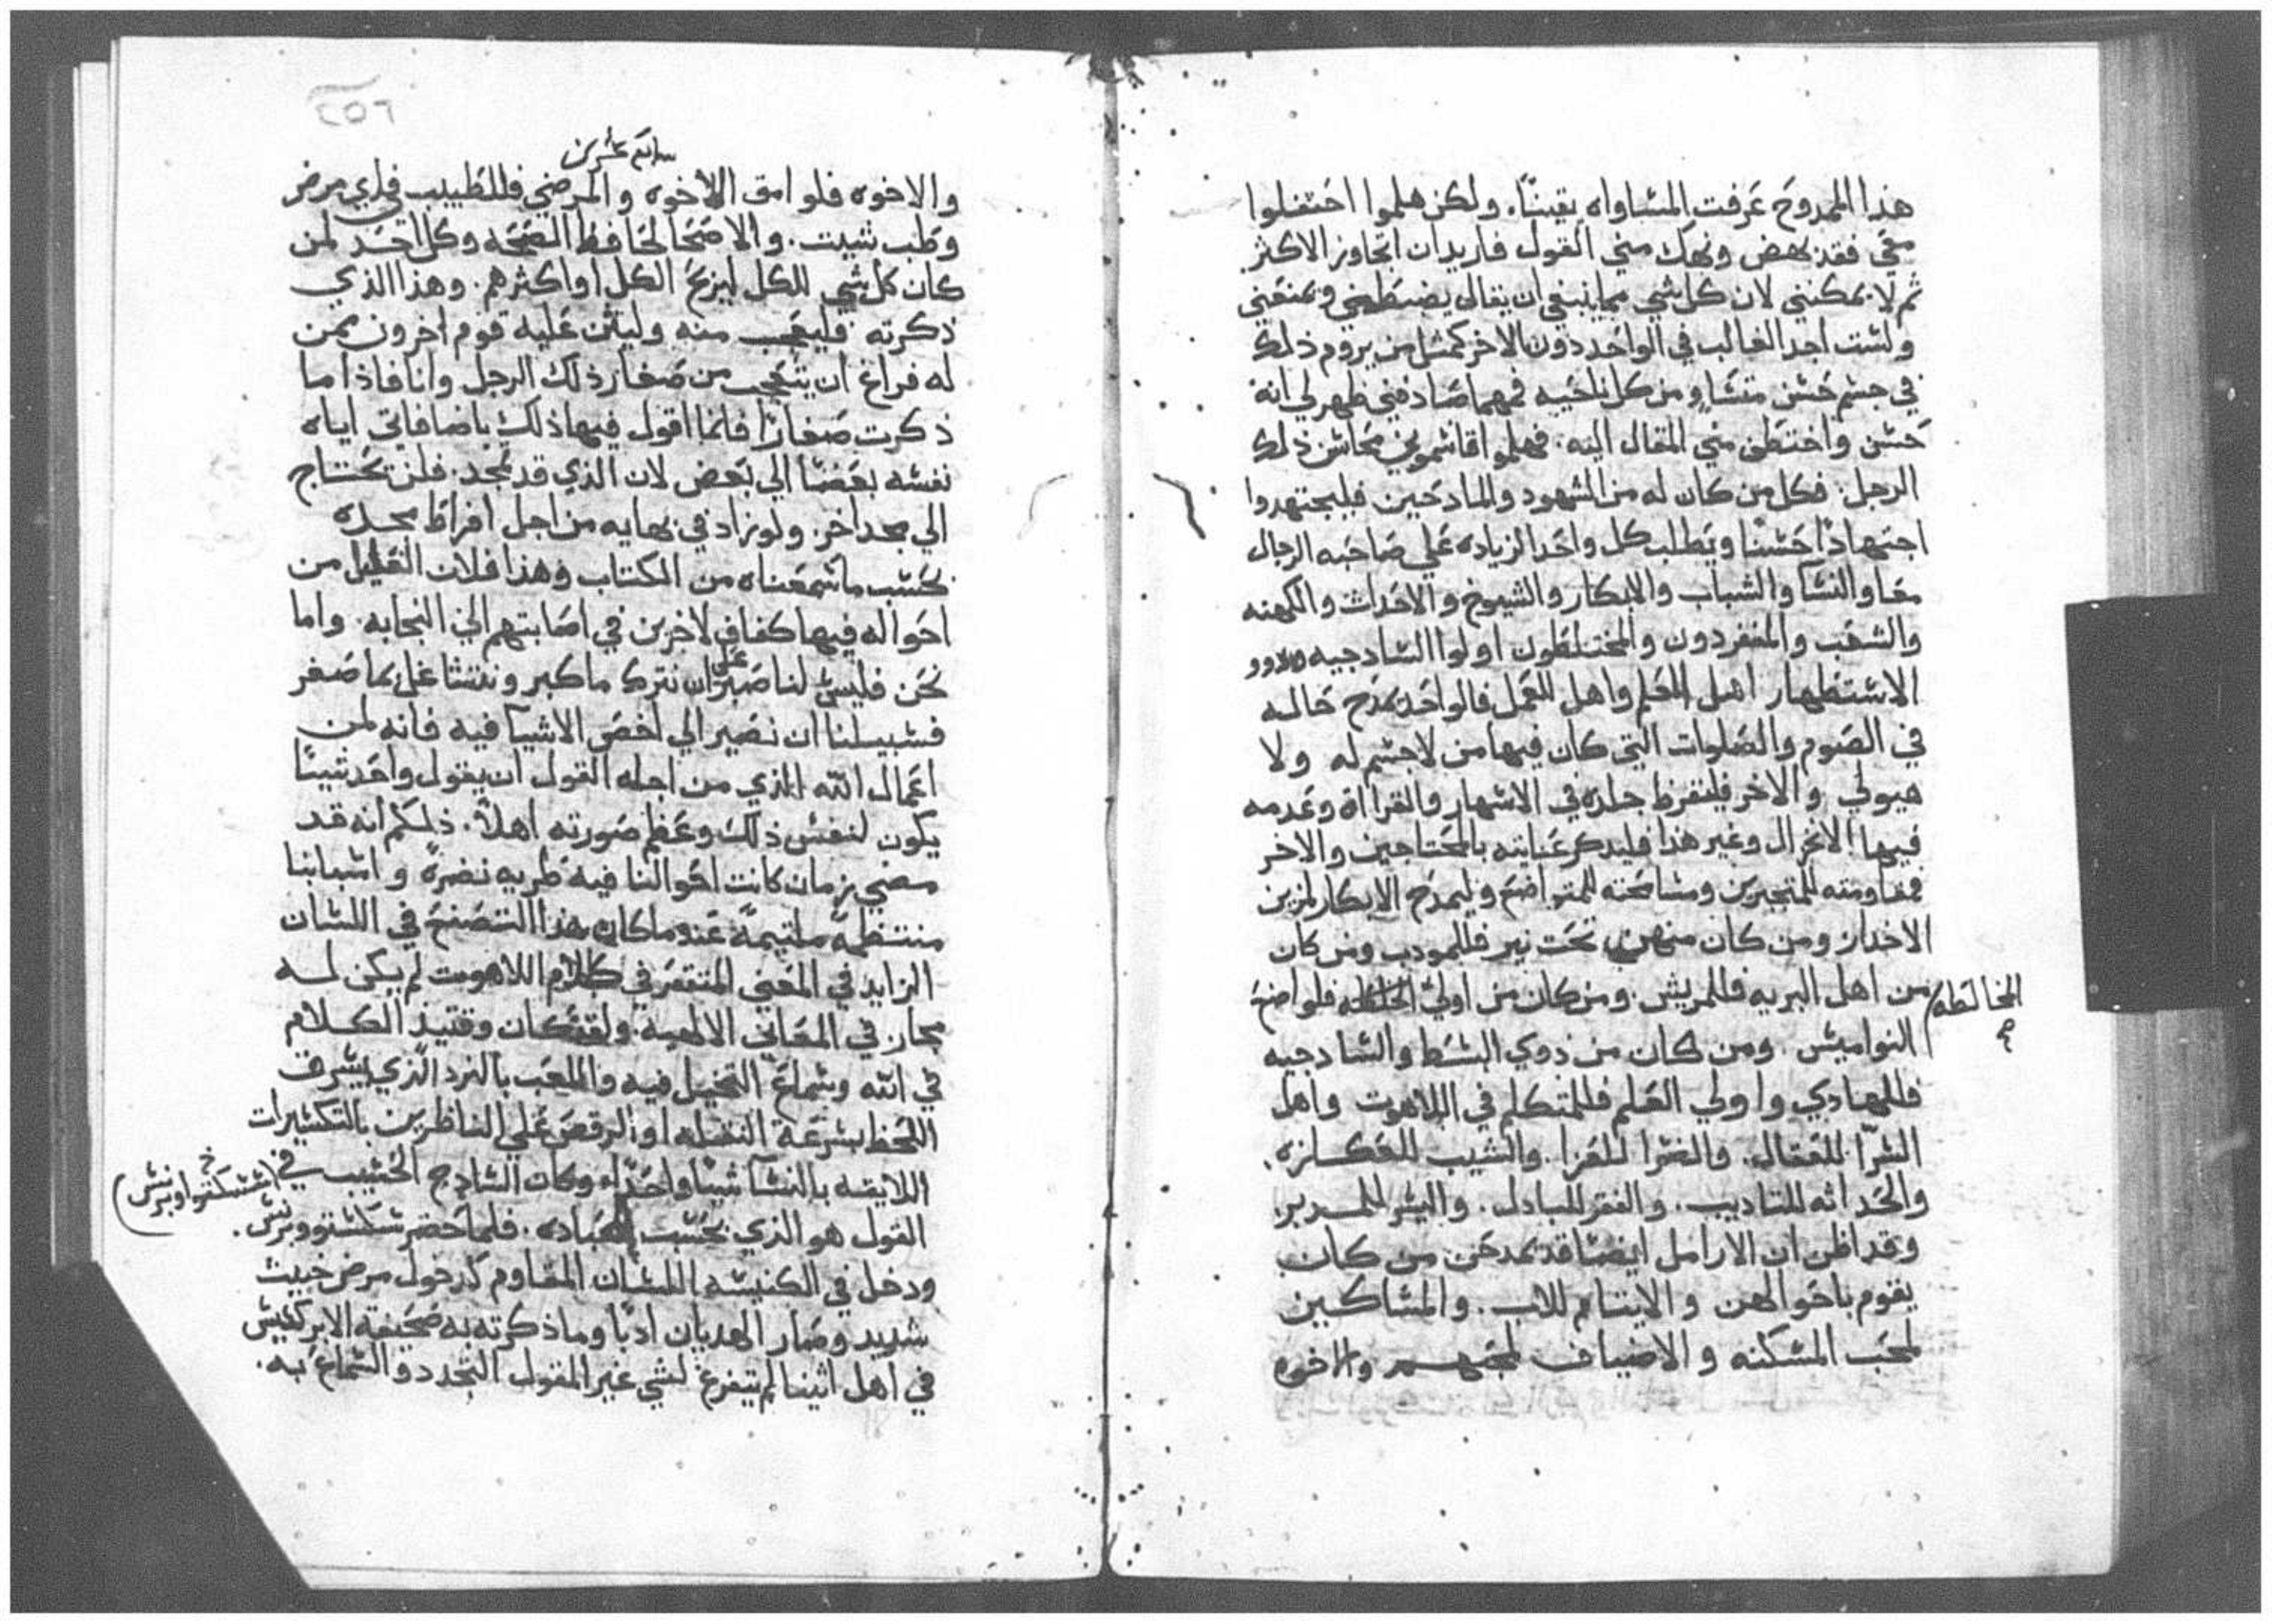 هذا الممدوح عرفت المساواه يقيناً. ولكن هلموا احتفلوا
معي فقد نهض ونهك مني القول فاريد ان اتجاوز الاكثر
ثم لا يمكنني لان كل شي مما ينبغي ان يقال يضبطني ويمنعني
ولست اجد الغالب في الواحد دون الاخر كمثل من يروم ذلك
في جسم حسن متساوٍ من كل ناحيه فمهما صادفني ظهر لي انه
حسن واختطف مني المقال اليه. فهلموا قاسموني محاسن ذلك
الرجل. فكل من كان له من الشهود والمادحين فليجتهدوا
اجتهاداً حسناً ويطلب كل واحد الزياده علي صاحبه الرجال
معا والنسآ والشباب والابكار والشيوخ والاحداث والكهنه
والشعب والمنفردون والمختلطون اولوا السادجيه وذوو
الاستظهار اهل العلم واهل العمل فالواحد يمدح حاله
في الصوم والصلوات التي كان فيها من لا جسم له ولا
هيولي والاخر فليقرظ جلده في الاسهار والقراآة وعدمه
فيها الانخزال وغير هذا فليدكر عنايته بالمحتاجين والاخر
فمقاومته للمتجبرين ومسامحته للمتواضع وليمدح الابكار لمزين
الاخدار ومن كان منهن تحت نير فللمودب ومن كان
من اهل البريه فللمريش. ومن كان من اولي الخلطه فلواضع
المخالطه
النواميس. ومن كان من ذوي البسط والسادجيه
فللهادي واولي العلم فللمتكلم في اللاهوت واهل
السرّا للعقال. والضرا للعزا. والشيب للعكازه.
والحداثه للتاديب. والفقر للبادل. واليسر للمدبر.
وقد اظن ان الارامل ايضا قد يمدحن من كان
يقوم باحوالهن والايتام للاب. والمساكين
لمحب المسكنه والاضياف لمحبهم والاخوه
سابع عشرين
والاخوه فلوامق الاخوه والمرضي فللطبيب في اي مرض
وطب شيت. والاصحا لحافظ الصحه وكل احد لمن
كان كل شي للكل ليربح الكل او اكثرهم. وهذا الذي
ذكرته فليعجب منه وليثن عليه قوم اخرون ممن
له فراغ ان يتعجب من صغار ذلك الرجل وانا فاذا ما
ذكرت صغاراً فانما اقول فيها ذلك باضافاتي اياه
نفسه بعضا الي بعض لان الذي قد تمجد. فلن يحتاج
الي مجد اخر. ولو زاد في بهايه من اجل افراط مجده
بحسب ما سمعناه من الكتاب وهذا فلان القليل من
احواله فيها كفاف لاخرين في اصابتهم الي النجابه. واما
نحن فليس لنا صبر علي ان نترك ما كبر ونتشاغل بما صغر
فسبيلنا ان نصير الي اخص الاشيآ فيه فانه لمن
اعمال الله الذي من اجله القول ان يقول واحد شيئاً
يكون لنفس ذلك وعظم صورته اهلاً. ذلكم انه قد
مضي زمان كانت احوالنا فيه طريه نضرة واسبابنا
منتظمة ملتيمة عندما كان هذا التصنع في اللسان
الزايد في المعني المتقعر في كلام اللاهوت لم يكن له
مجاز في المعاني الالهيه. ولقد كان وقتيذ الكلام
في الله وسماع التخيل فيه واللعب بالنرد الذي يسرق
اللحظ بسرعة النقله او الرقص علي الناظرين بالتكثيرات
اللايقه بالنسآ شيئا واحداً. وكان السادج الحسيب في
القول هو الذي بحسب العباده. فلما حضر سكستو وبرنس.
سسكتوا وبرنس
ودخل في الكنيسه اللسان المقاوم كدخول مرض خبيث
شديد وصار الهديان ادبا وما ذكرته به صحيفة الابركسيس
في اهل اثينا لم يتفرغ لشي غير المقول التجدد والسماع به.